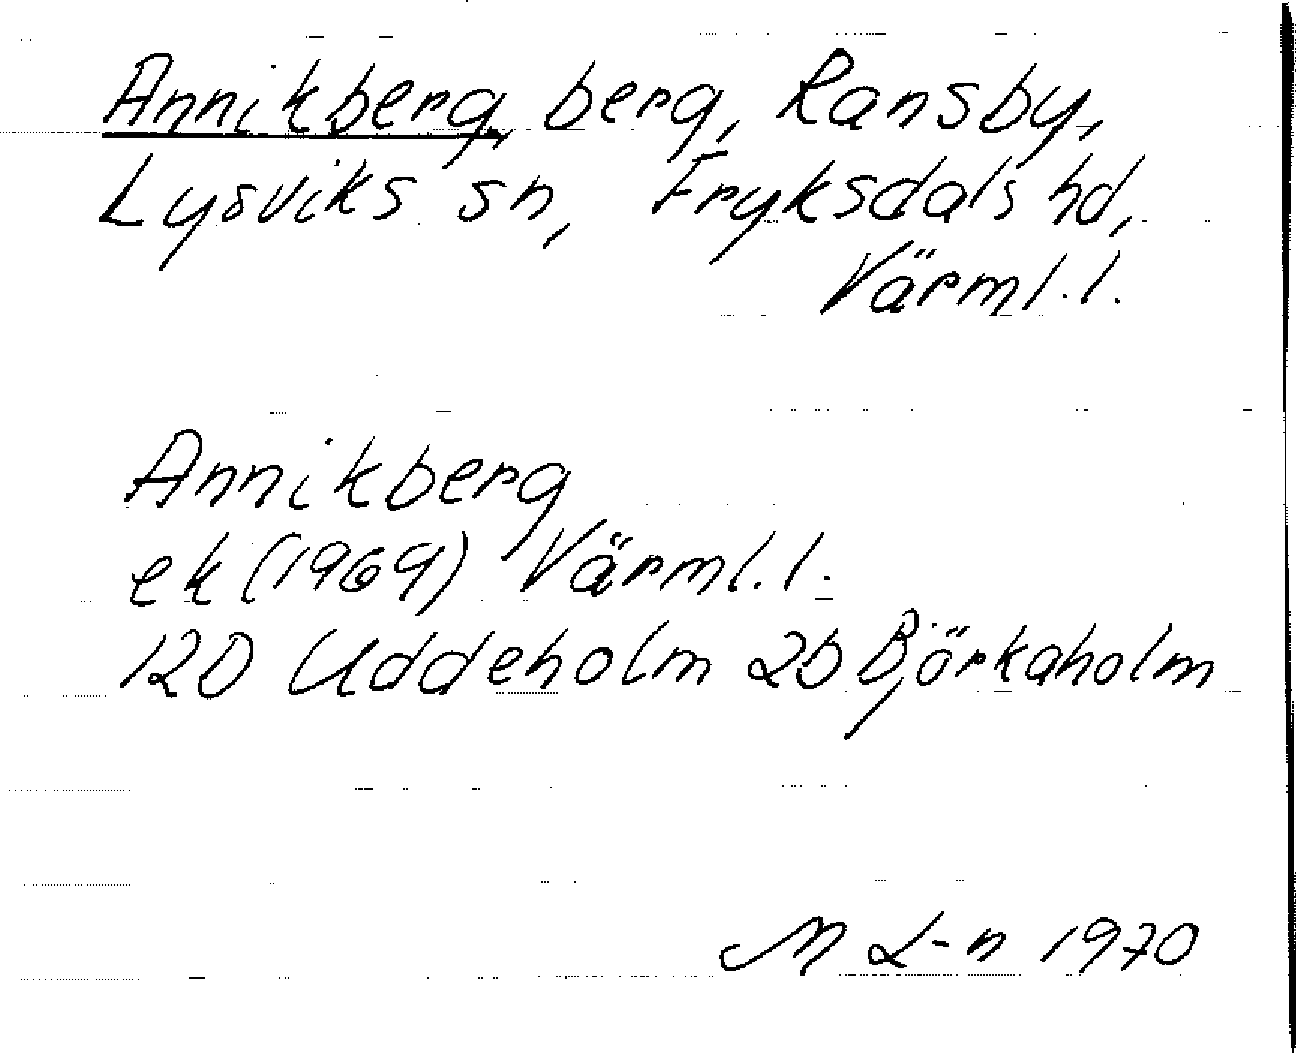 Annikberg, berg, Ransby,
Lysviks sn, Fryksdals hd,
Värml.l.
Annikberg
ek (1969) Värml.l.
12D Uddeholm 2b Björkaholm
M L-n 1970